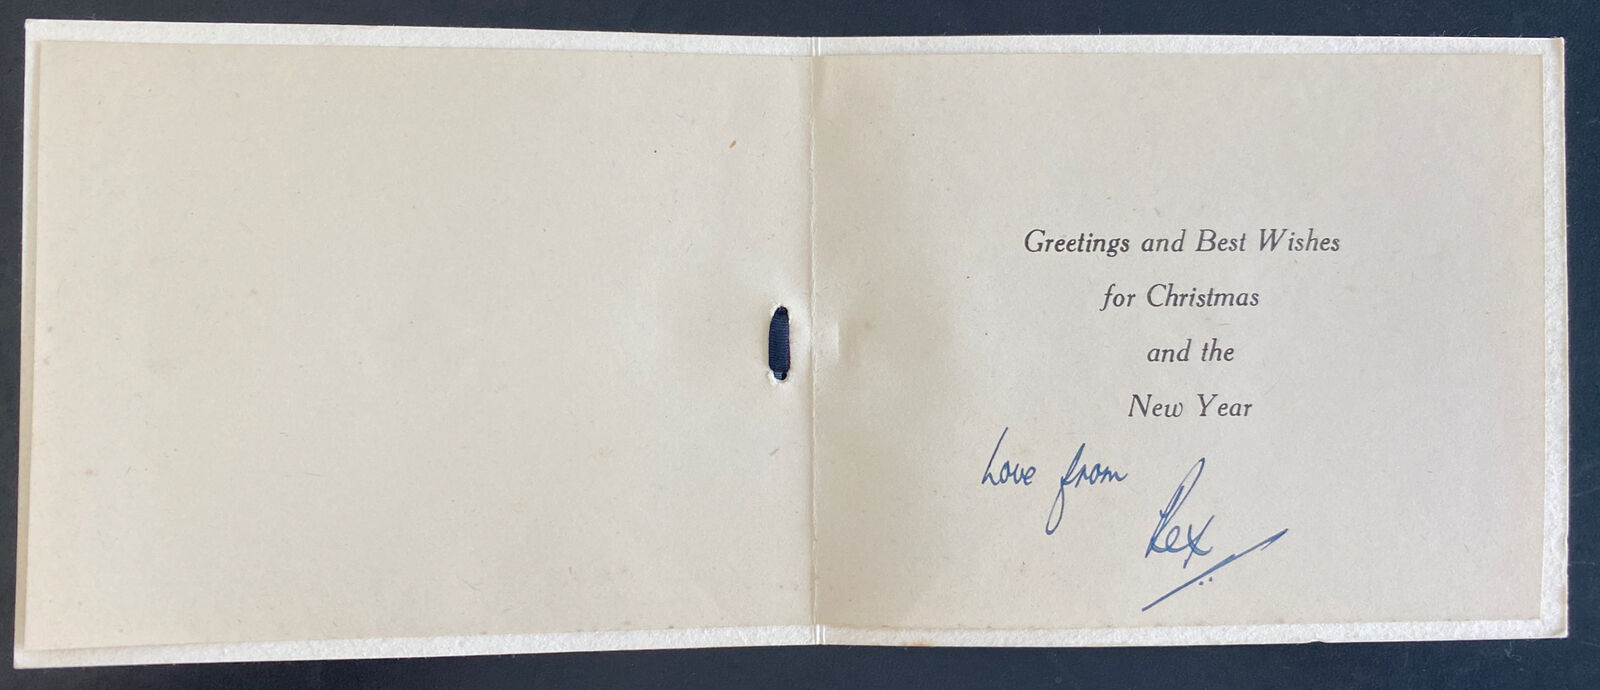 Greetings and Best Wishes
for Christmas
and the
New Year
Love from
Rex